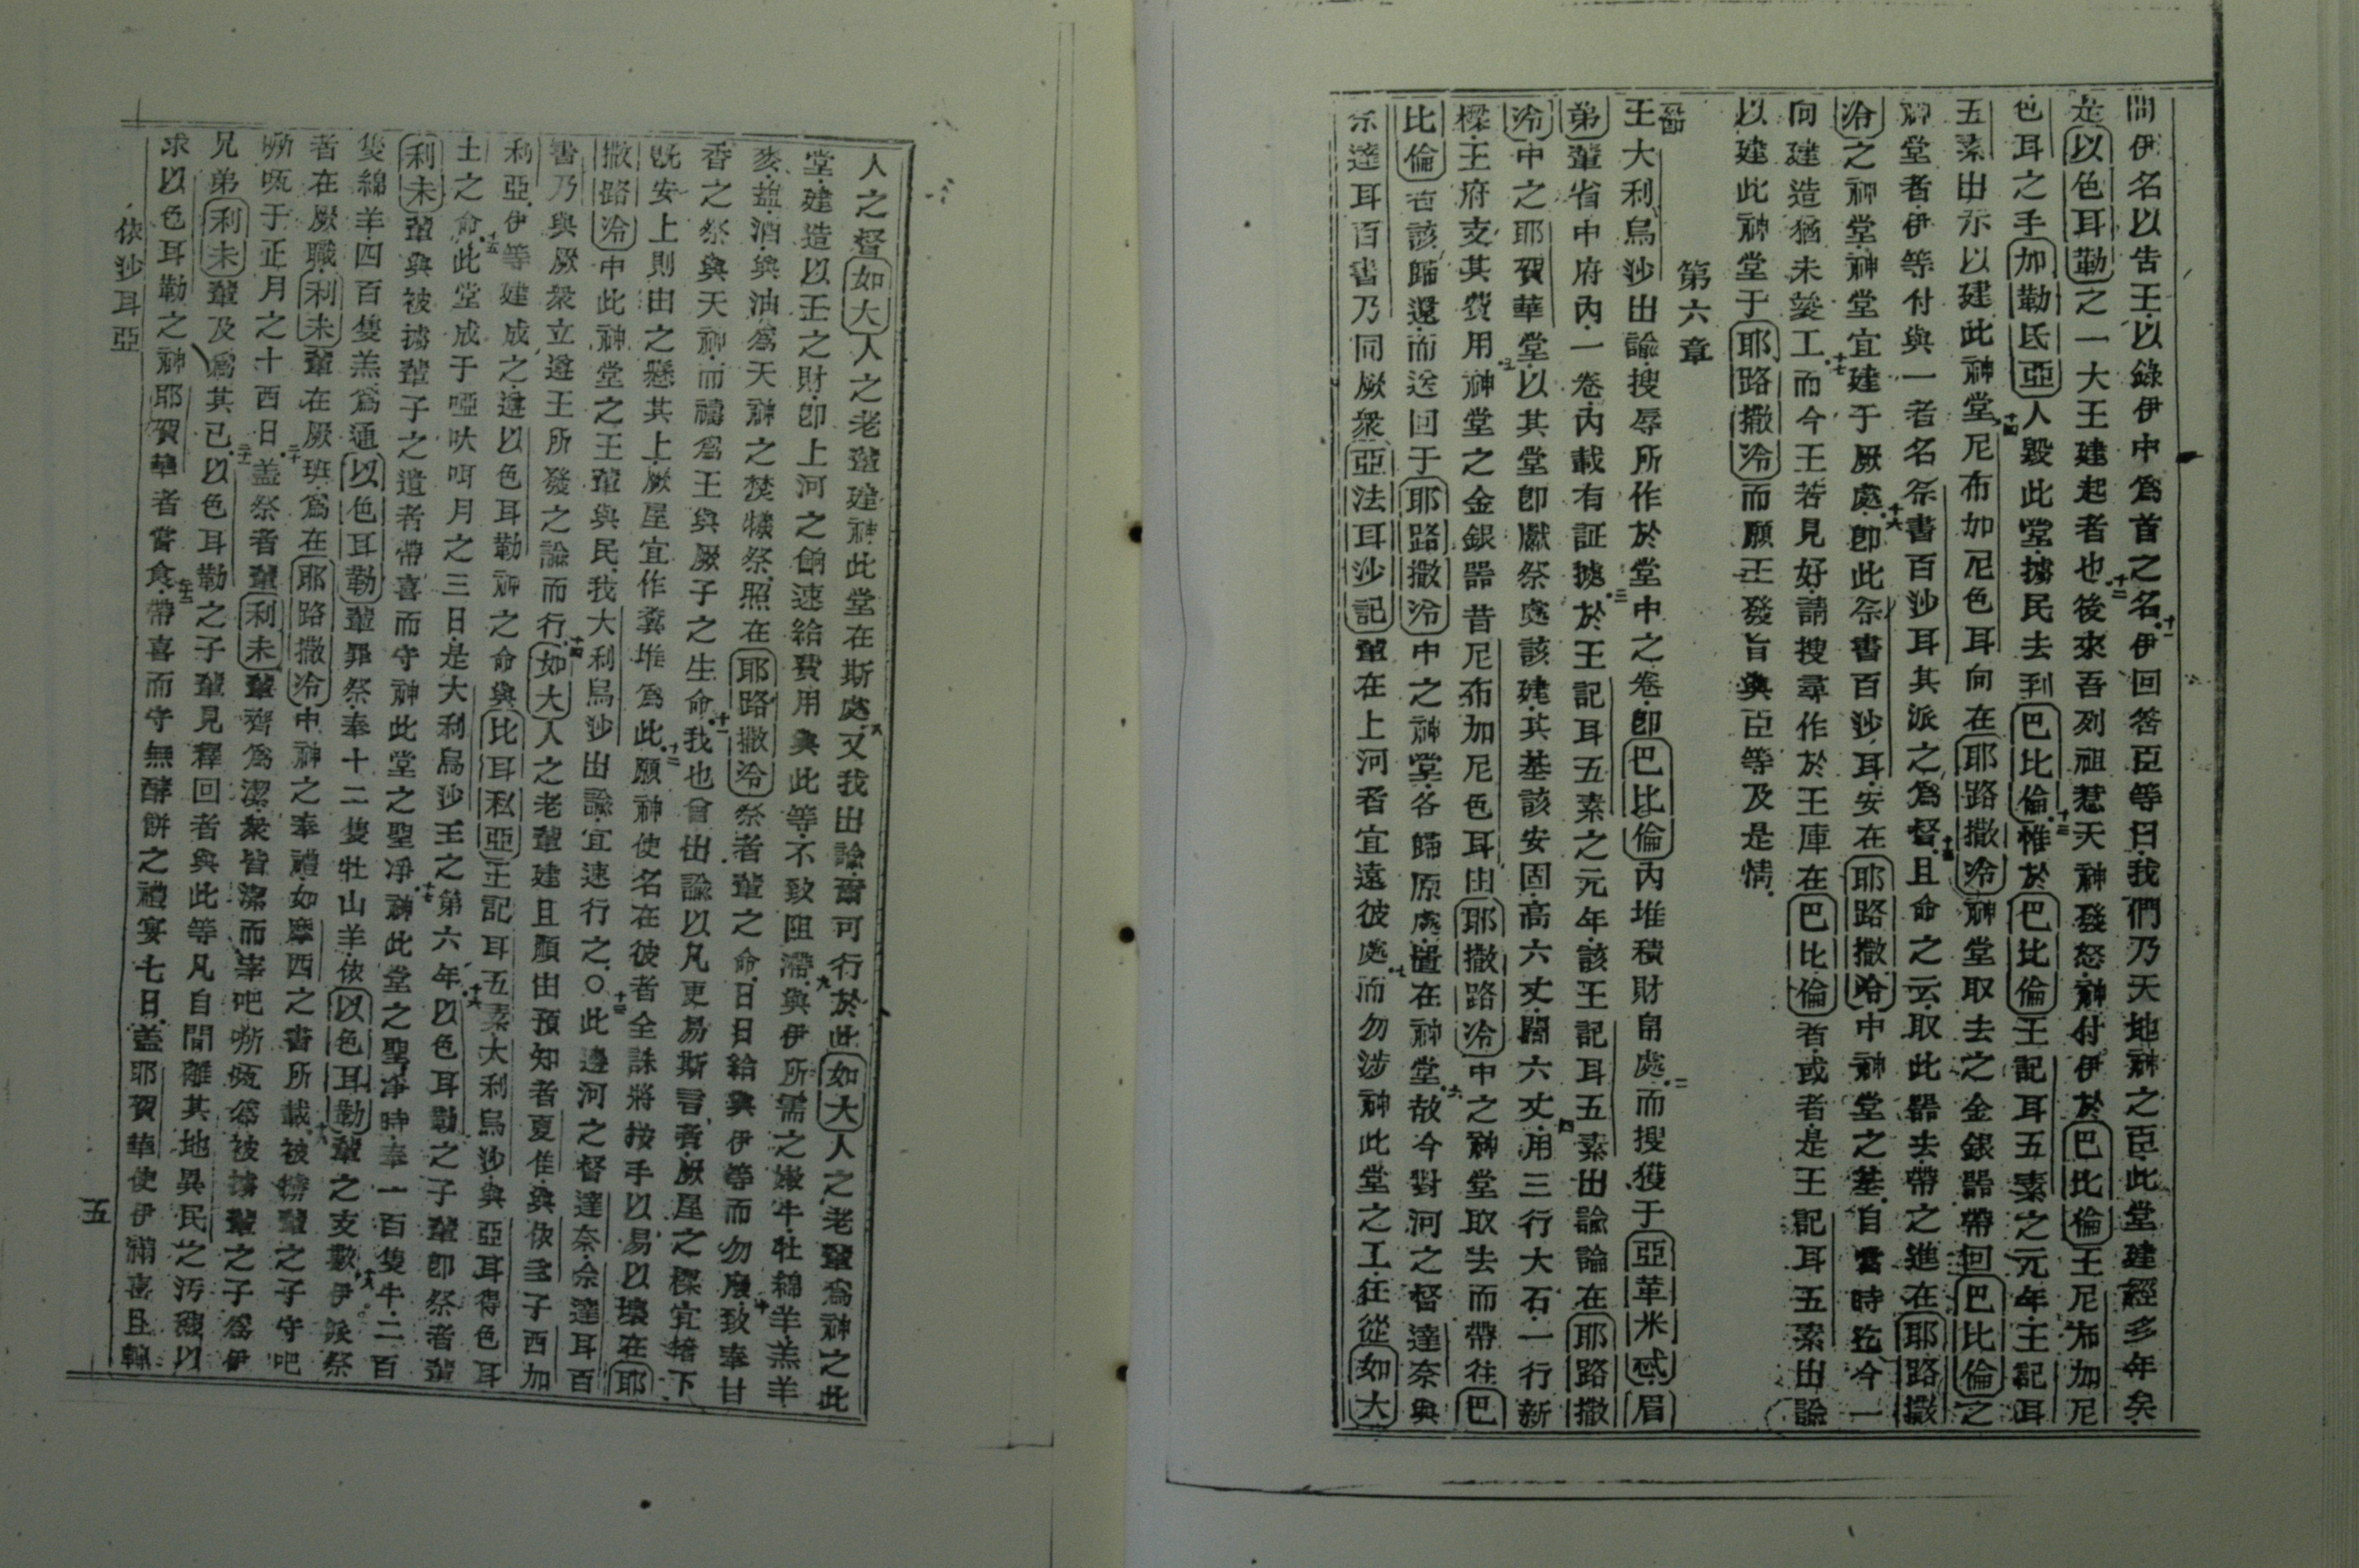 問伊名以告王以錄伊中為首之名十一伊回答臣等曰我們乃天地神之臣此堂建經多年矣
是以色耳勒之一大王建起者也十二後來吾列祖惹天神發怒神付伊於巴比倫王尼布加尼
色耳之手加勒氏亞人毀此堂擄民去到巴比倫十三惟於巴比倫王記耳五素之元年王記耳
五素出示以建此神堂十四尼布加尼色耳向在耶路撒冷神堂取去之金銀器帶回巴比倫之
神堂者伊等付與一者名佘書百沙耳其派之為督十五且命之云取此器去帶之進在耶路撒
冷之神堂神堂宜建于厥處十六即此佘書百沙耳安在耶路撒冷中神堂之基自當時迄今一
向建造猶未竣工十七而今王若見好請搜尋作於王庫在巴比倫者或者是王記耳五素出諭
以建此神堂于耶路撒冷而願王發旨與臣等及是情
第六章
一節王大利烏沙出諭搜尋所作於堂中之卷即巴比倫內堆積財帛處二而搜獲于亞革米忒眉
弟輩省中府內一卷內載有証據於三王記耳五素之元年該王記耳五素出諭論在耶路撒
冷中之耶賀華堂以其堂即獻祭處該建其基該安固高六丈闊六丈四用三行大石一行新
樑王府支其費用五神堂之金銀器昔尼布加尼色耳由耶撒路冷中之神堂取去而帶往巴
比倫者該歸還而送回于耶路撒冷中之神堂各歸原處置在神堂六故今對河之督達奈與
佘達耳百書乃同厥衆亞法耳沙記輩在上河者宜遠彼處七而勿涉神此堂之工任從如大
人之督如大人之老輩建神此堂在斯處八又我出諭爾可行於此如大人之老輩為神之此
堂建造以王之財即上河之餉速給費用與此等不致阻滯九與伊所需之嫩牛牡綿羊羔羊
麥鹽酒與油為天神之焚犧祭照在耶路撒冷祭者輩之命日日給與伊等而勿廢致奉甘
香之祭與天神而禱為王與厥子之生命十一我也曾出諭以凡更易斯言者厥屋之樑宜拆下
既安上則由之懸其上厥屋宜作糞堆為此十二願神使名在彼者全誅將按手以易以壞在耶
撒路冷中此神堂之王輩與民我大利烏沙出諭宜速行之〇十三此邊河之督達奈佘達耳百
書乃與厥衆立遵王所發之諭而行十四如大人之老輩建且順由預知者夏隹與依子西加
利亞伊等建成之遵以色耳勒神之命與比耳私亞王記耳五素大利烏沙與亞耳得色耳
士之命十五此堂成于啞吠呵月之三日是大利烏沙王之第六年十六以色耳勒之子輩即祭者輩
利未輩與被擄輩子之遺者帶喜而守神此堂之聖凈十七神此堂之聖凈時奉一百隻牛二百
隻綿羊四百隻羔為通以色耳勒輩罪祭奉十二隻牡山羊依以色耳勒輩之支數十八伊派祭
者在厥職利未輩在厥班為在耶路撒冷中神之奉禮如摩西之書所載十九被擄輩之子守吧
嘶呱于正月之十四日二十蓋祭者輩利未輩齊為潔衆皆潔而宰吧嘶呱為被擄輩之子為伊
兄弟利未輩及為其己二十一以色耳勒之子輩見釋回者與此等凡自間離其地異民之汚穢以
求以色耳勒之神耶賀華者嘗食二十二帶喜而守無酵餅之禮宴七日蓋耶賀華使伊滿喜且轉
依沙耳亞
五